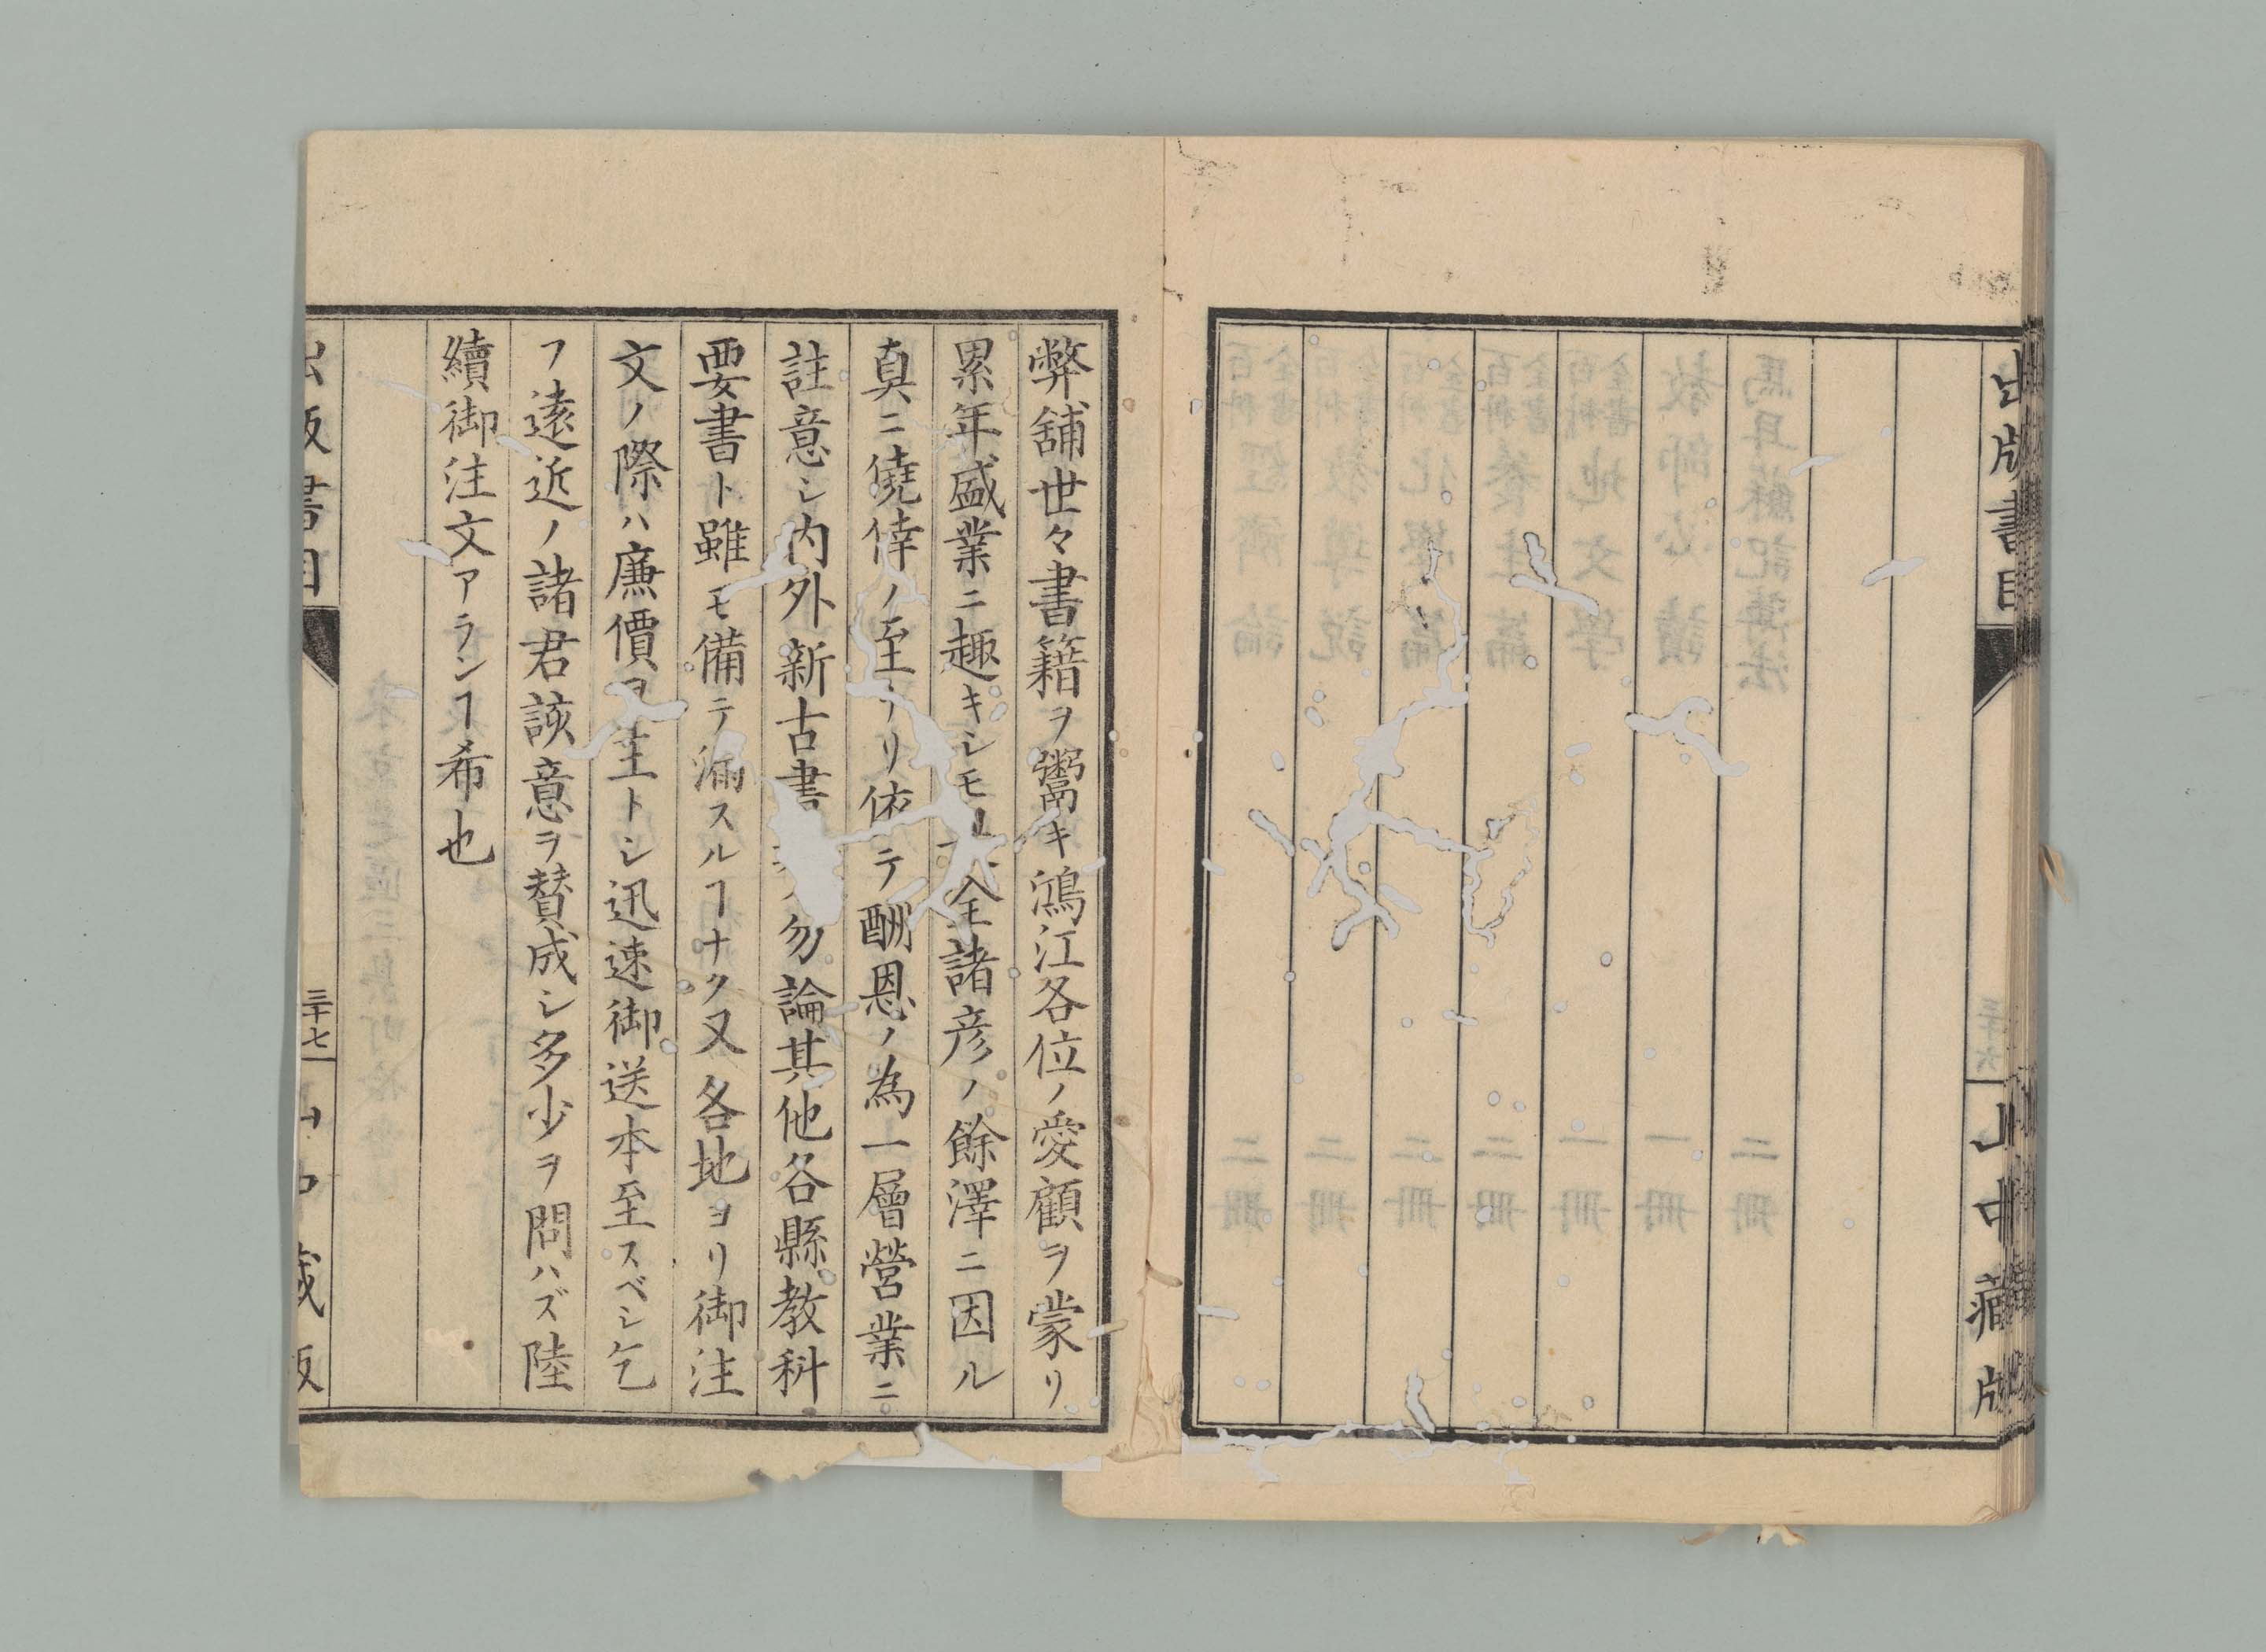 出版書目
山中藏版
弊舖世々書籍ヲ鬻キ鴻江各位ノ愛顧ヲ蒙リ
累年盛業ニ趣キシモ全諸彦ノ餘澤ニ因ル
真ニ僥倖ノ至リ依テ酬恩ノ為一層營業ニ
註意シ内外新古書勿論其他各縣教科
要書ト雖モ備テ漏スルヿナク又各地ヨリ御注
文ノ際ハ廉價ヲ主トシ迅速御送本至スベシ乞
フ遠近ノ諸君該意ヲ賛成シ多少ヲ問ハズ陸
續御注文アランヿ希也
出版書目
三十七
山中藏版